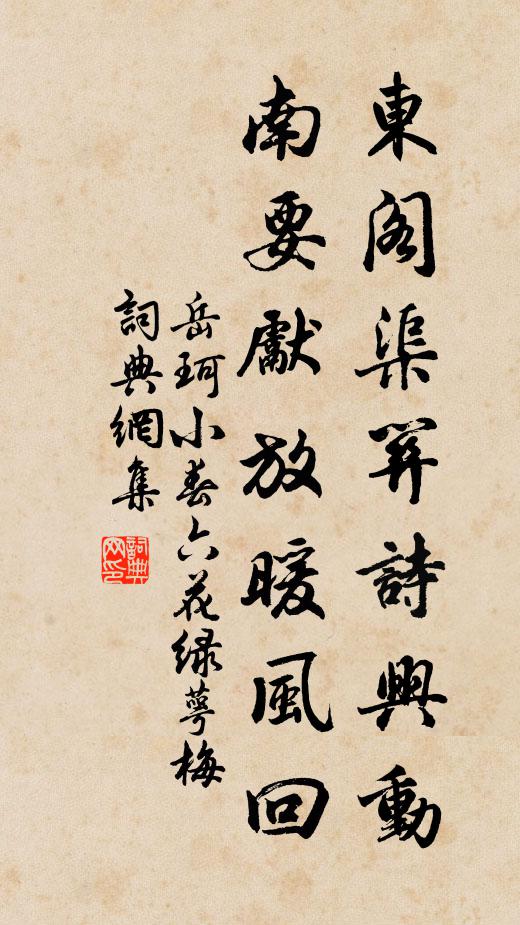 東閣渠詩興動
南要獻放暖風回
岳珂小春六花绿萼梅
詞典網集
詞典网印